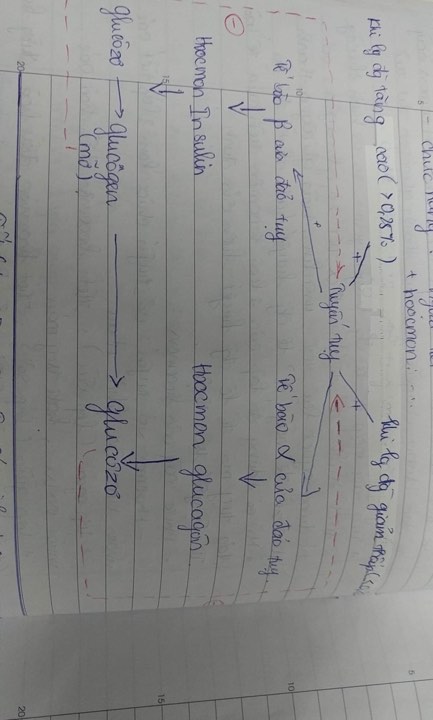 - chức năng
+ hoocmon:
Khi lg đg tăng cao (>0,25%)
Khi lg đg giảm thấp
+ +
Tuyến tụy
+
Tế bào β của đảo tụy
Tế bào α của đảo tụy
(-)
Hoocmon Insulin
Hoocmon glucagôn
glucôzơ → glucôgen → glucôzơ
(mđ)
5
10
15
20
5
10
15
20